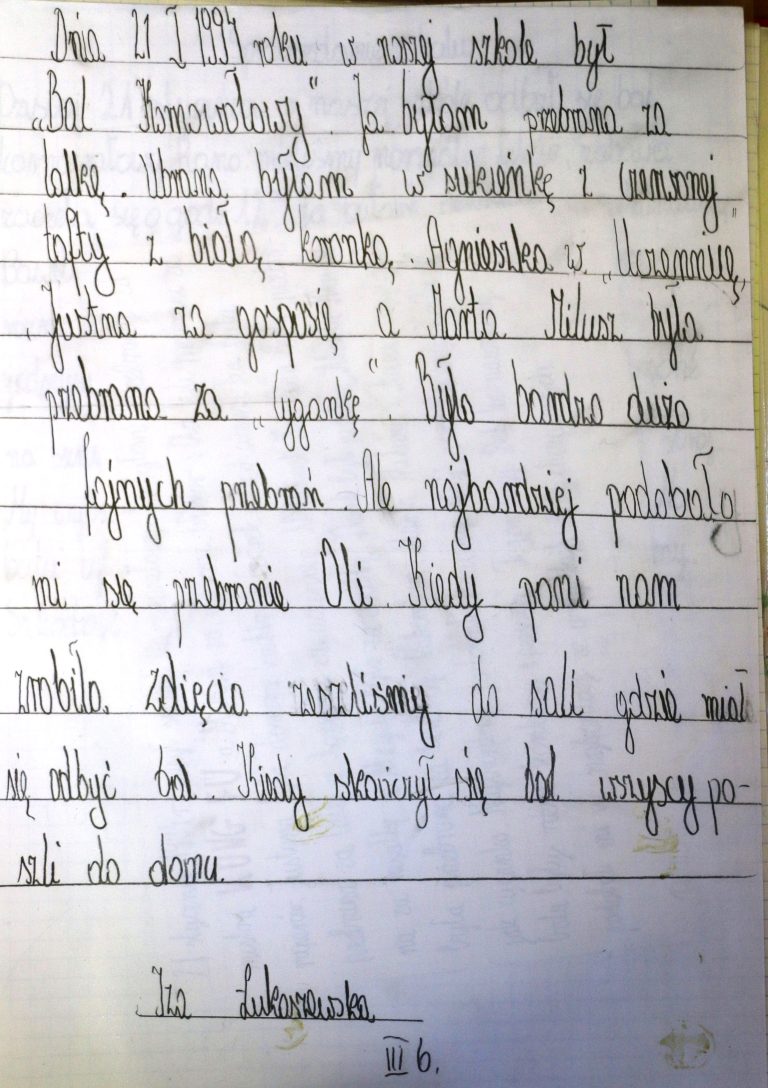 Dnia 21 I 1994 roku w naszej szkole był
„Bal Karnawałowy" Ja byłam przebrana za
lalkę. Ubrana byłam w sukienkę z czerwonej
tafty z białą koronką. Agnieszka w „Uczennicę"
Justna za gosposię a Marta Milusz była
przebrana za „Cygankę" Było bardzo dużo
fajnych przebrań. Ale najbardziej podobało
mi się przebranie Oli. Kiedy pani nam
zrobiła zdięcia zeszliśmy do sali gdzie miał
się odbyć bal Kiedy skończył się bal wszyscy po-
szli do domu.
Iza Łukaszewska
III b.